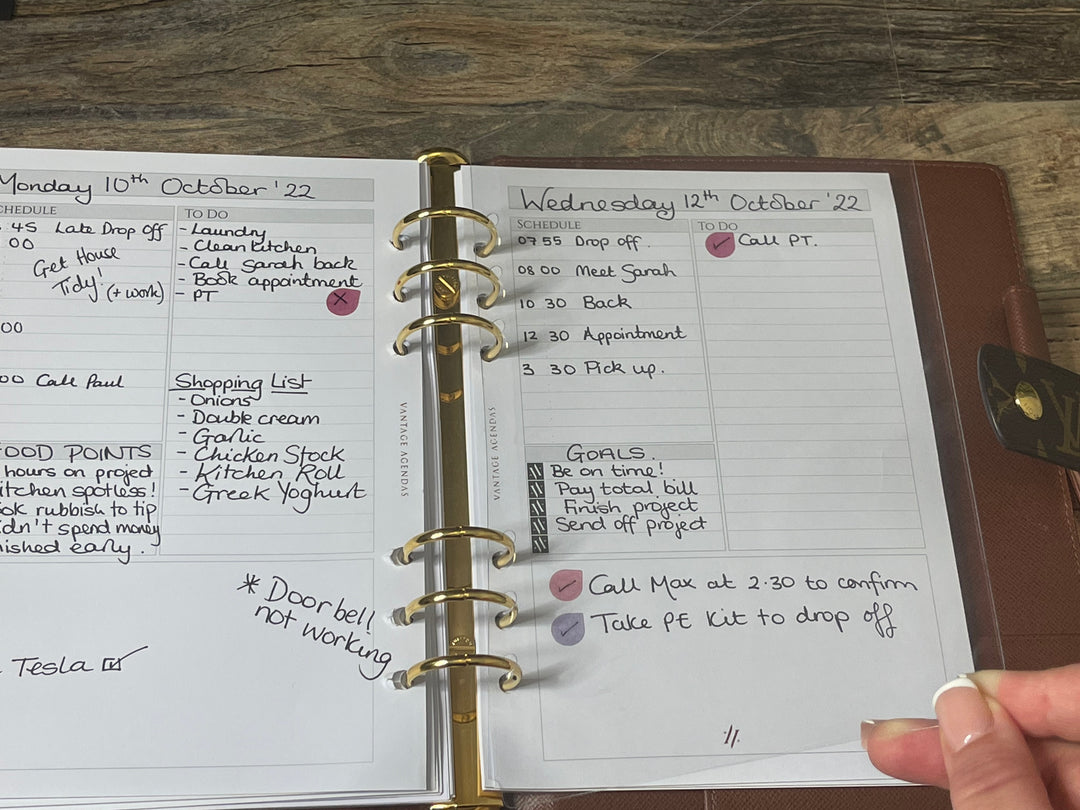 Monday 10th October '22
SCHEDULE
45 Late Drop off
00
Get House
Tidy! (+ work)
00
00 Call Paul
TO DO
- Laundry
- Clean kitchen
- Call Sarah back
- Book appointment
- PT
Shopping List
- Onions
- Double cream
- Garlic
- Chicken Stock
- Kitchen Roll
- Greek Yoghurt
GOOD POINTS
hours on project
itchen spotless!
ook rubbish to tip
idn't spend money
nished early.
* Doorbell
not working
Tesla
VANTAGE AGENDAS
VANTAGE AGENDAS
Wednesday 12th October '22
SCHEDULE
07 55 Drop off.
08 00 Meet Sarah
10 30 Back
12 30 Appointment
3 30 Pick up.
TO DO
Call PT.
GOALS.
Be on time!
Pay total bill
Finish project
Send off project
Call Max at 2.30 to confirm
Take PE Kit to drop off
LV